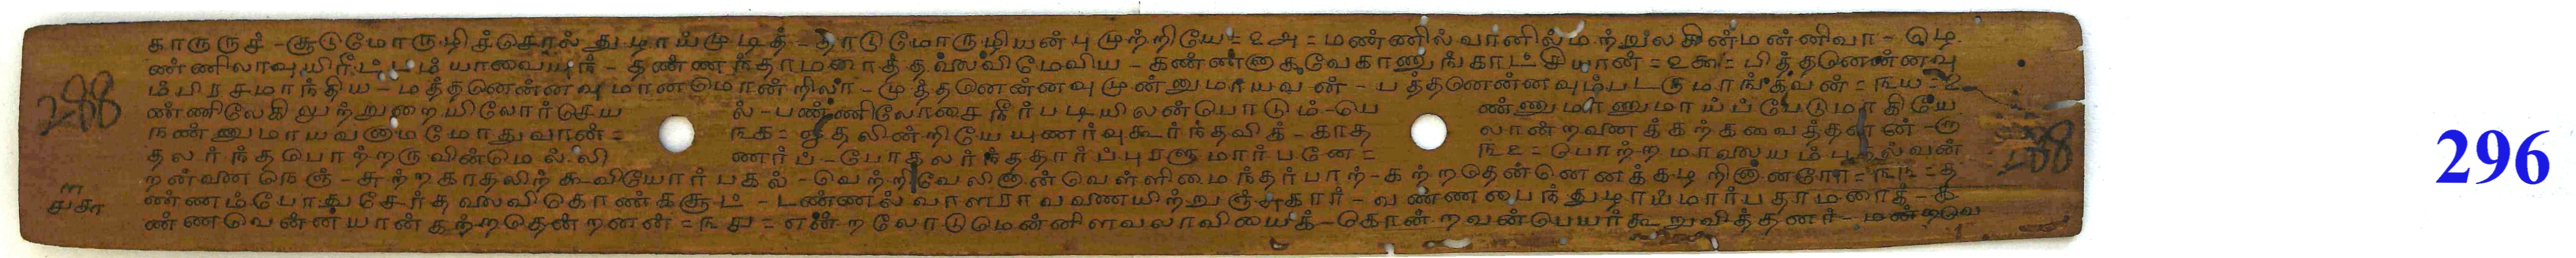 காருருச் - சூடுமோருழிச்செரல் துழாய்முடித் - தாடுமோருழியன்பு முற்றியே = ௨அ = மண்ணில் வானில்மற்றுல கின்மன்னிவா - ழெ
ண்ணிலாவுயிர்ப் யாவையுந் - தண்ண நதாமரைத் தவ்லவிமேவிய - கண்ணனாகவேகாணுங்காட்சியான் = ௨௯ = பித்தனென்னவு
ம்பிரசமாந்திய - மத்தனென்னவு மானமொன்றிலா - முத்தனென்னவு முன்னுமாயவன் - பத்தனென்னவும்படருமாங்கவன் = ௩ய = உ
ண்ணிலேகி லுற்றுறையிலோர்செய ல் - பண்ணிலோசை நீர்படியிலண்பொடும் - பெ ண்ணுமாணுமாய்ப்பேடுமாகியே
நண்ணுமாயவனாமமோதுவான் = ௩௧ = தலின்றியே யுணர்வுகூர்ந்தவிக் - காத லான்றவணக்கற்கவைத்தனன் -
தலர்ந்தபொற்றருவின்மெல்லி ணர்ப் - போதலர்ந்ததார்ப்புரளுமார்பனே = ௩௨ = பொற்ற மாவலயம் புதல்வன்
றன்வண - சுற்றகாதலிற் கூவியோர்பகல் - வெற்றிவேலினான்வெள்ளிமைந்தர்பாற் - கற்றதென்னெனக்கழறினானரோ = ௩௩ = த
ண்ணம்போதுசேர்தவல்விகொண்கசூட் - டண்ணல்வாளராவவணயிற்றுஞ்சுகார் - வண்ணபைந்துழாய்மார்பதாமரைக் - க
ண்ணவென்னயான் கற்றதென்றனன் = ௩௪ = என்றலோடுமென்னிளவலாவியைக் - கொன்றவன்பெயர்கூறுவித்தனர் - மன்ற
288
288
296